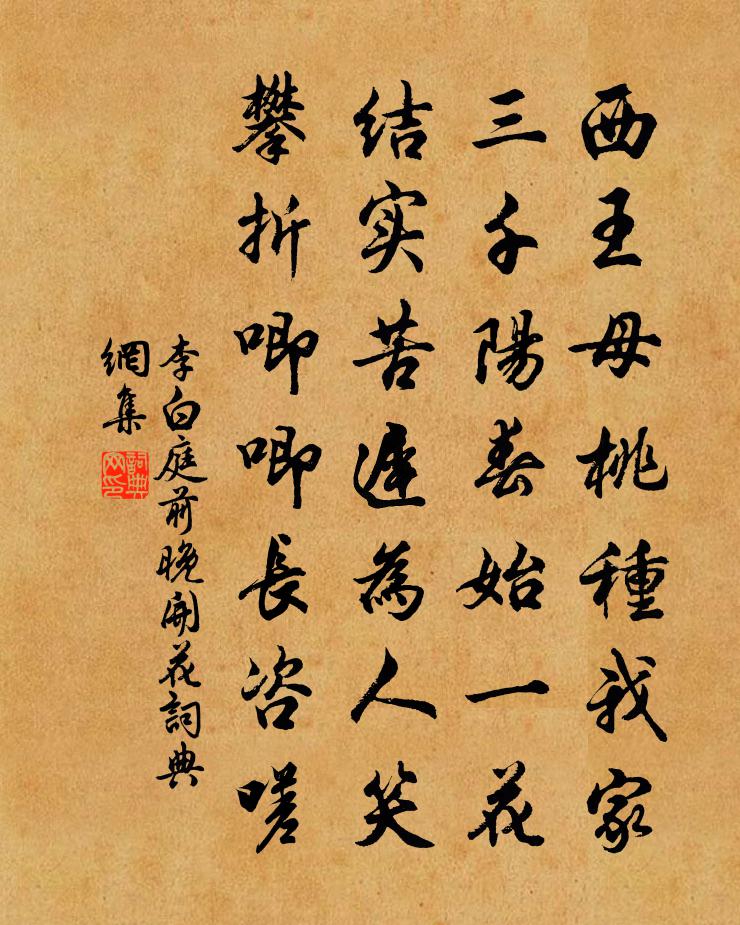 西王母桃種我家
三千陽春始一花
结实苦遲為人笑
攀折唧唧長咨嗟
李白庭前晚開花詞典
網集
詞典
网印